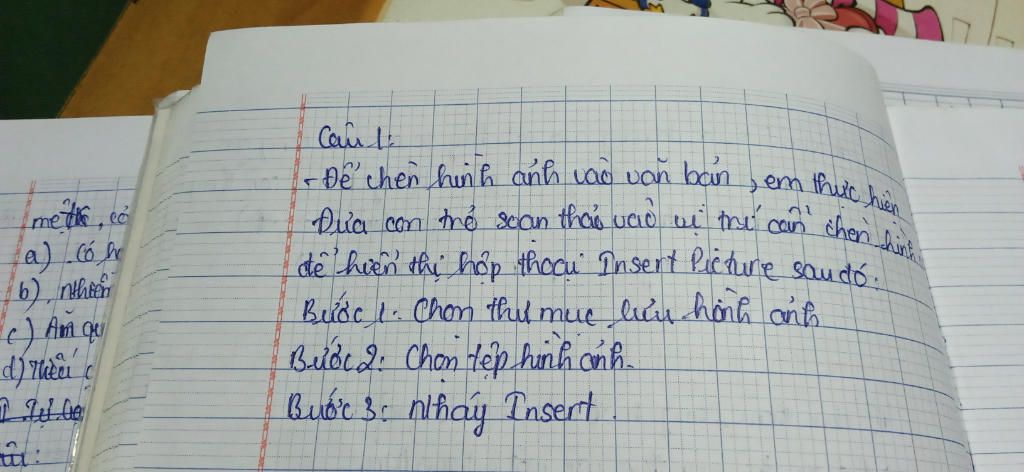 mẹ, có
a) Có h
b), nhiên
c) Âm qu
d) Thiếu c
Câu 1:
- Để chèn hình ảnh vào văn bản, em thực hiên
Đưa con trỏ soạn thảo vào vị trí cần chèn hình
để hiển thị hộp thoại Insert Picture sau đó.
Bước 1: Chọn thư mục lưu hình ảnh
Bước 2: Chọn tệp hình ảnh.
Bước 3: Nháy Insert.